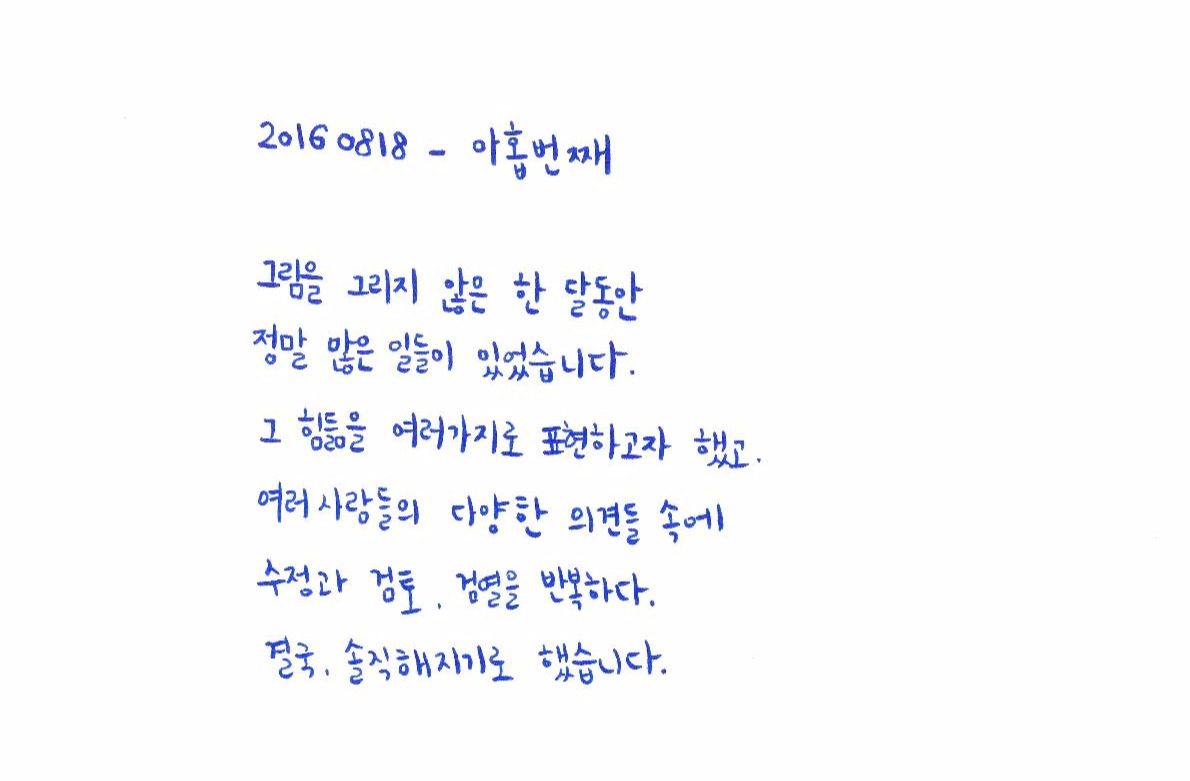 20160818 - 아홉번째
그림을 그리지 않은 한 달동안
정말 많은 일들이 있었습니다.
그 힘듦을 여러가지로 표현하고자 했고.
여러사람들의 다양한 의견들 속에
수정과 검토, 검열을 반복하다.
결국, 솔직해지기로 했습니다.